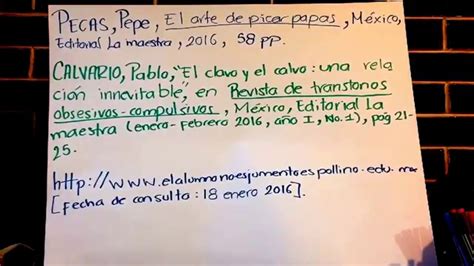 PECAS, Pepe, El arte de picar papas, México,
Editorial La maestra, 2016, 58 pp.
CALVARIO, Pablo, "El clavo y el calvo: una rela
ción innevitable", en Revista de transtonos
obsesivos-compulsivos, México, Editorial La
maestra (enero-Febrero 2016, año I, No. 1), pág 21-
25.
http://www.elalumnonoesjumentoespollino.edu.mx
[Fecha de consulta: 18 enero 2016].